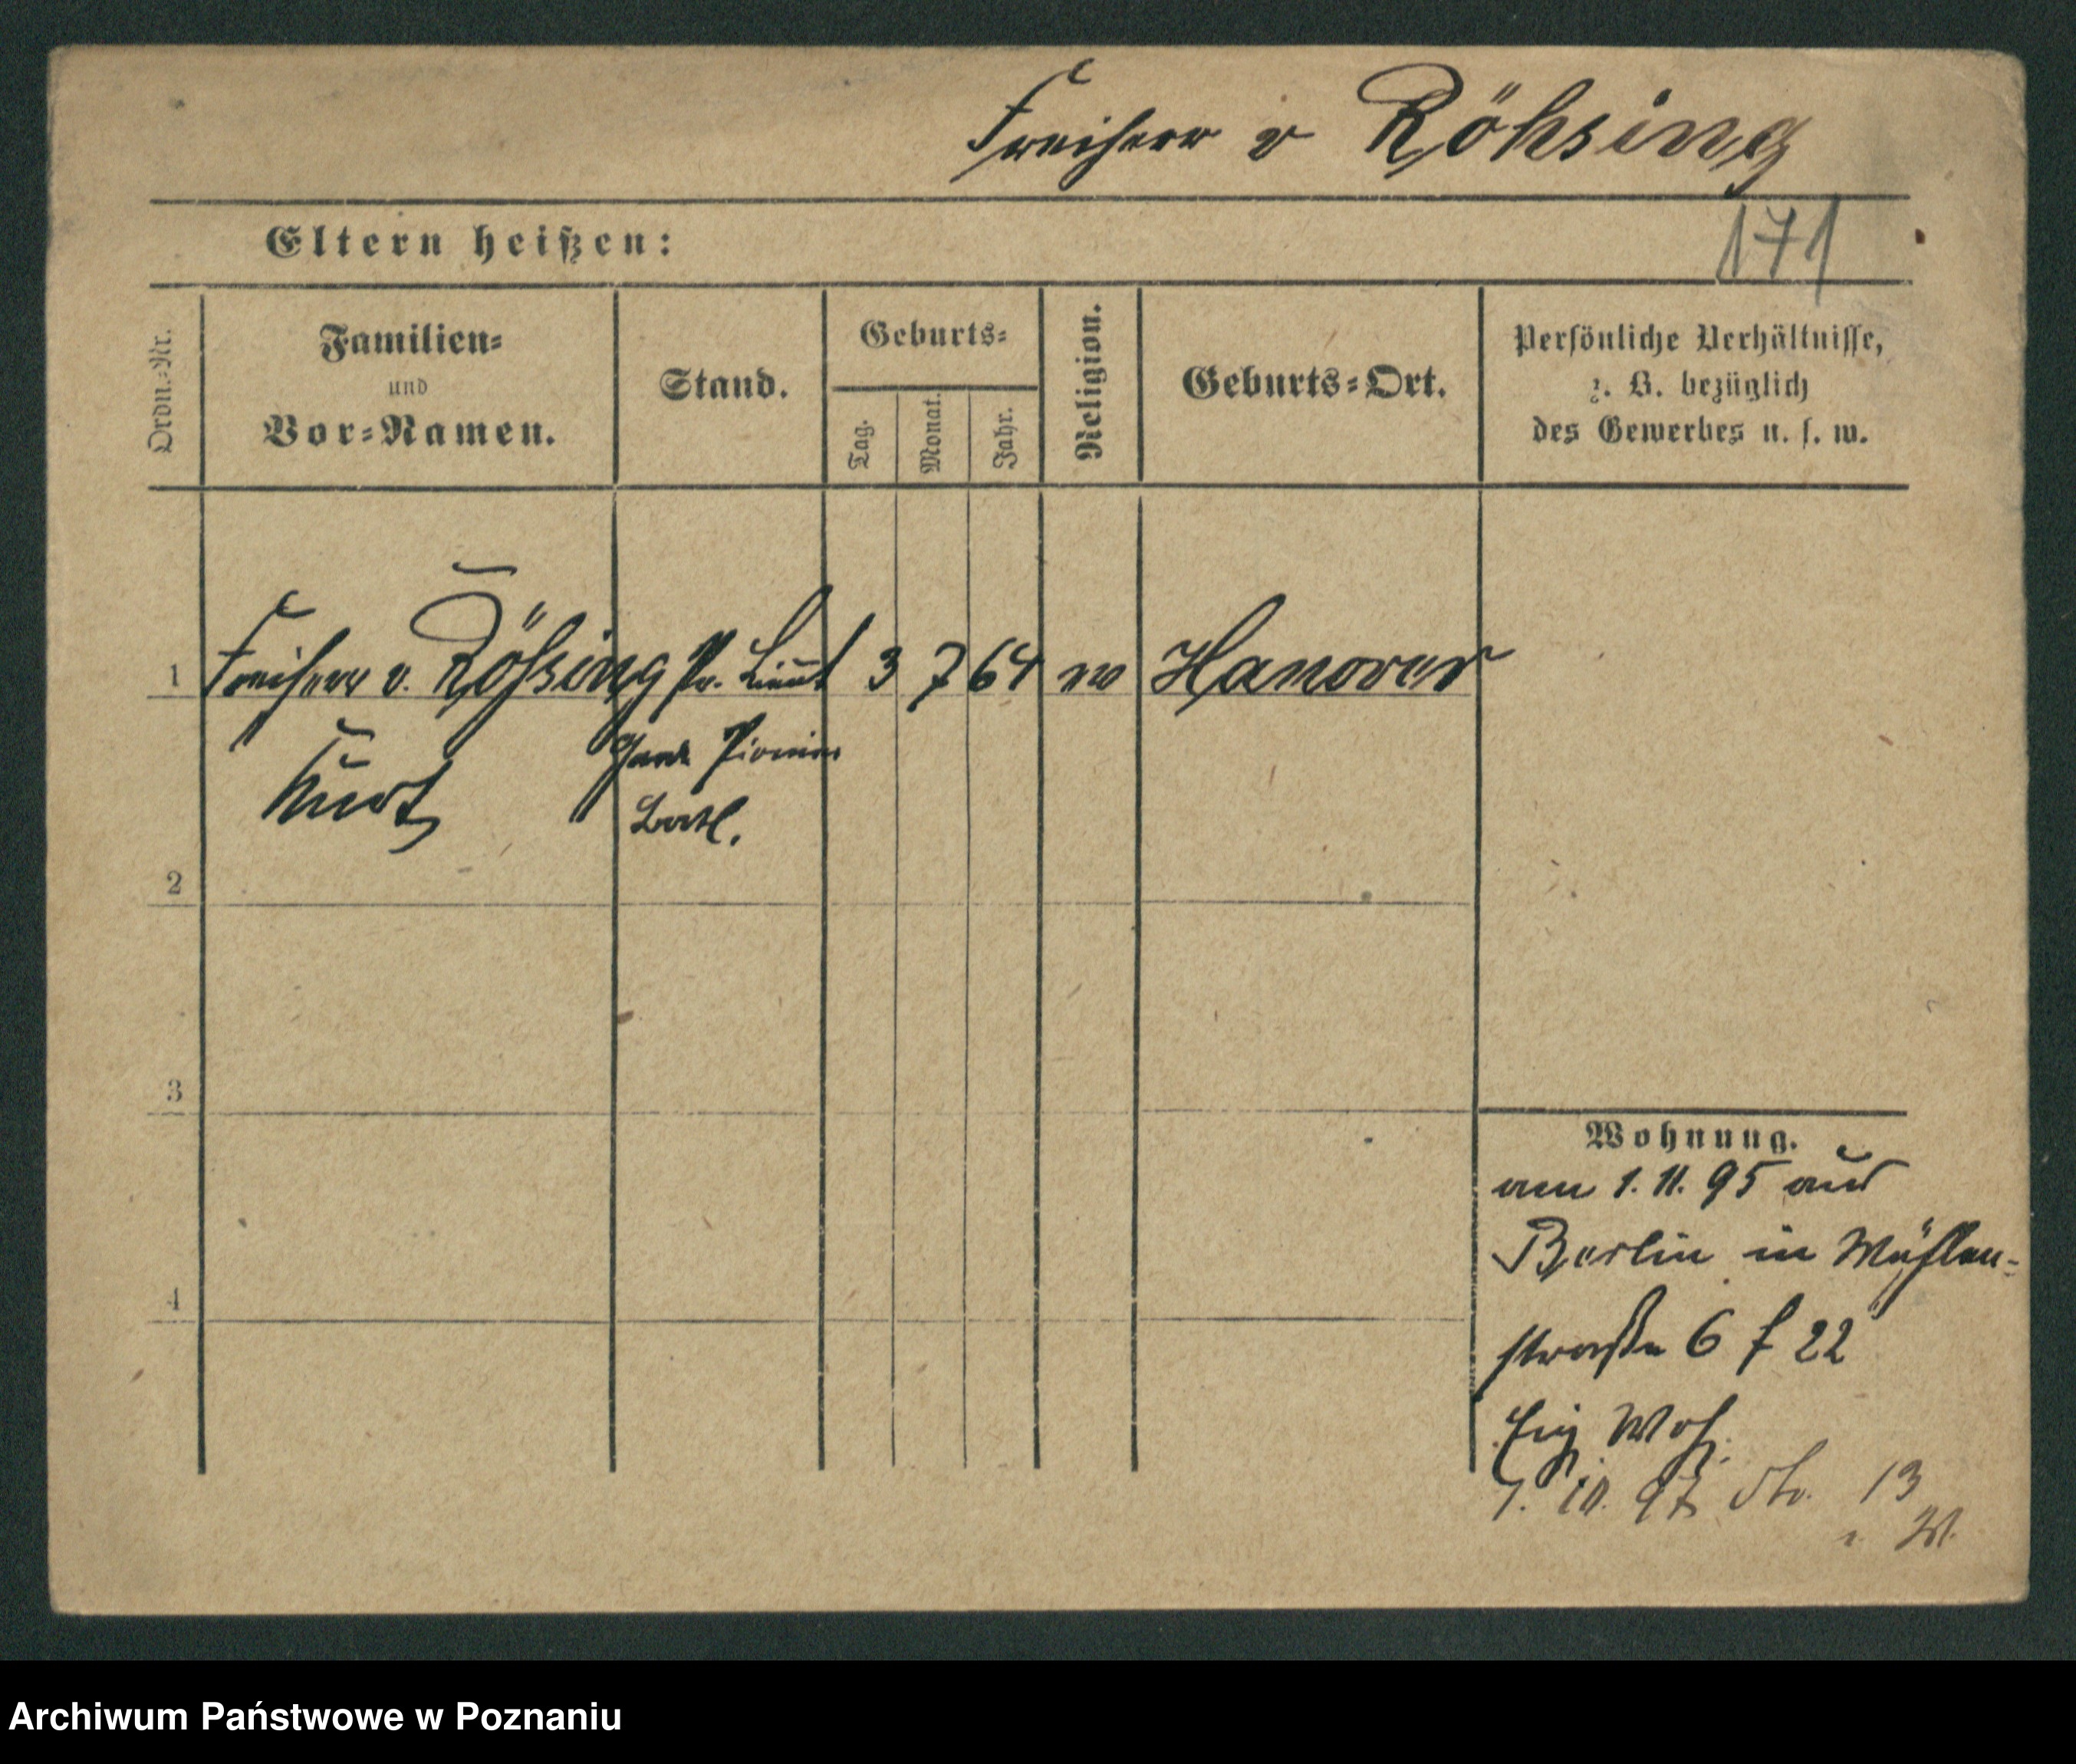 Freiherr v Röhsing
171
Eltern heißen:
Ordn.-Nr.
Familien-
und
Vor-Namen.
Stand.
Geburts-
Tag.
Monat.
Jahr.
Religion.
Geburts-Ort.
Persönliche Verhältnisse,
z. B. bezüglich
des Gewerbes u. s. w.
1 Freiherr v. Röhsing Pr. Lieut 3 7 64 Hanover
Kurt
Garde Pionier
Batl.
2
3
4
Wohnung.
am 1. 11. 95 aus
Berlin in Mühlen-
straße 6 f 22
Eig Woh.
10. 97 13
Archiwum Państwowe w Poznaniu